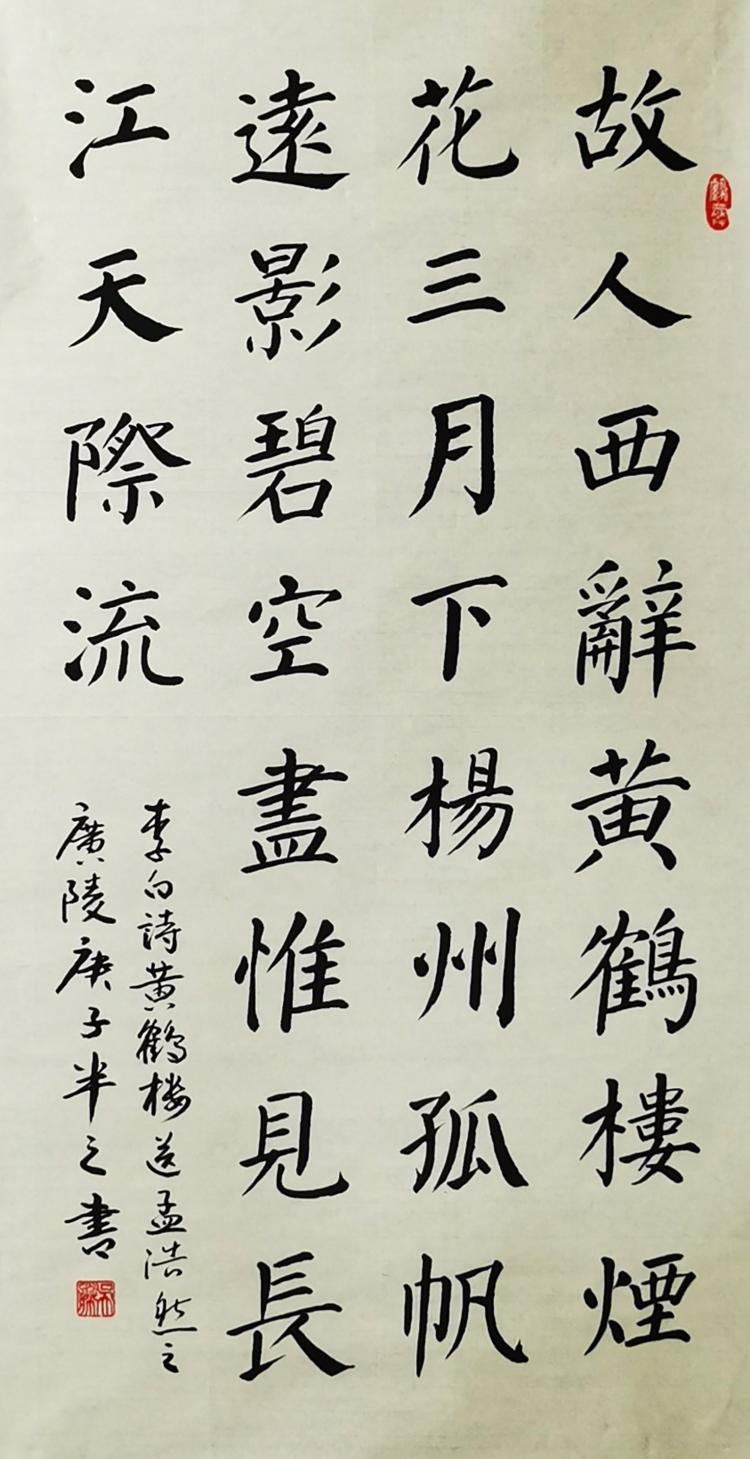 故人西辭黃鶴樓煙
花三月下楊州孤帆
遠影碧空盡惟見長
江天際流
李白詩黄鶴楼送孟浩然之
廣陵庚子半之書